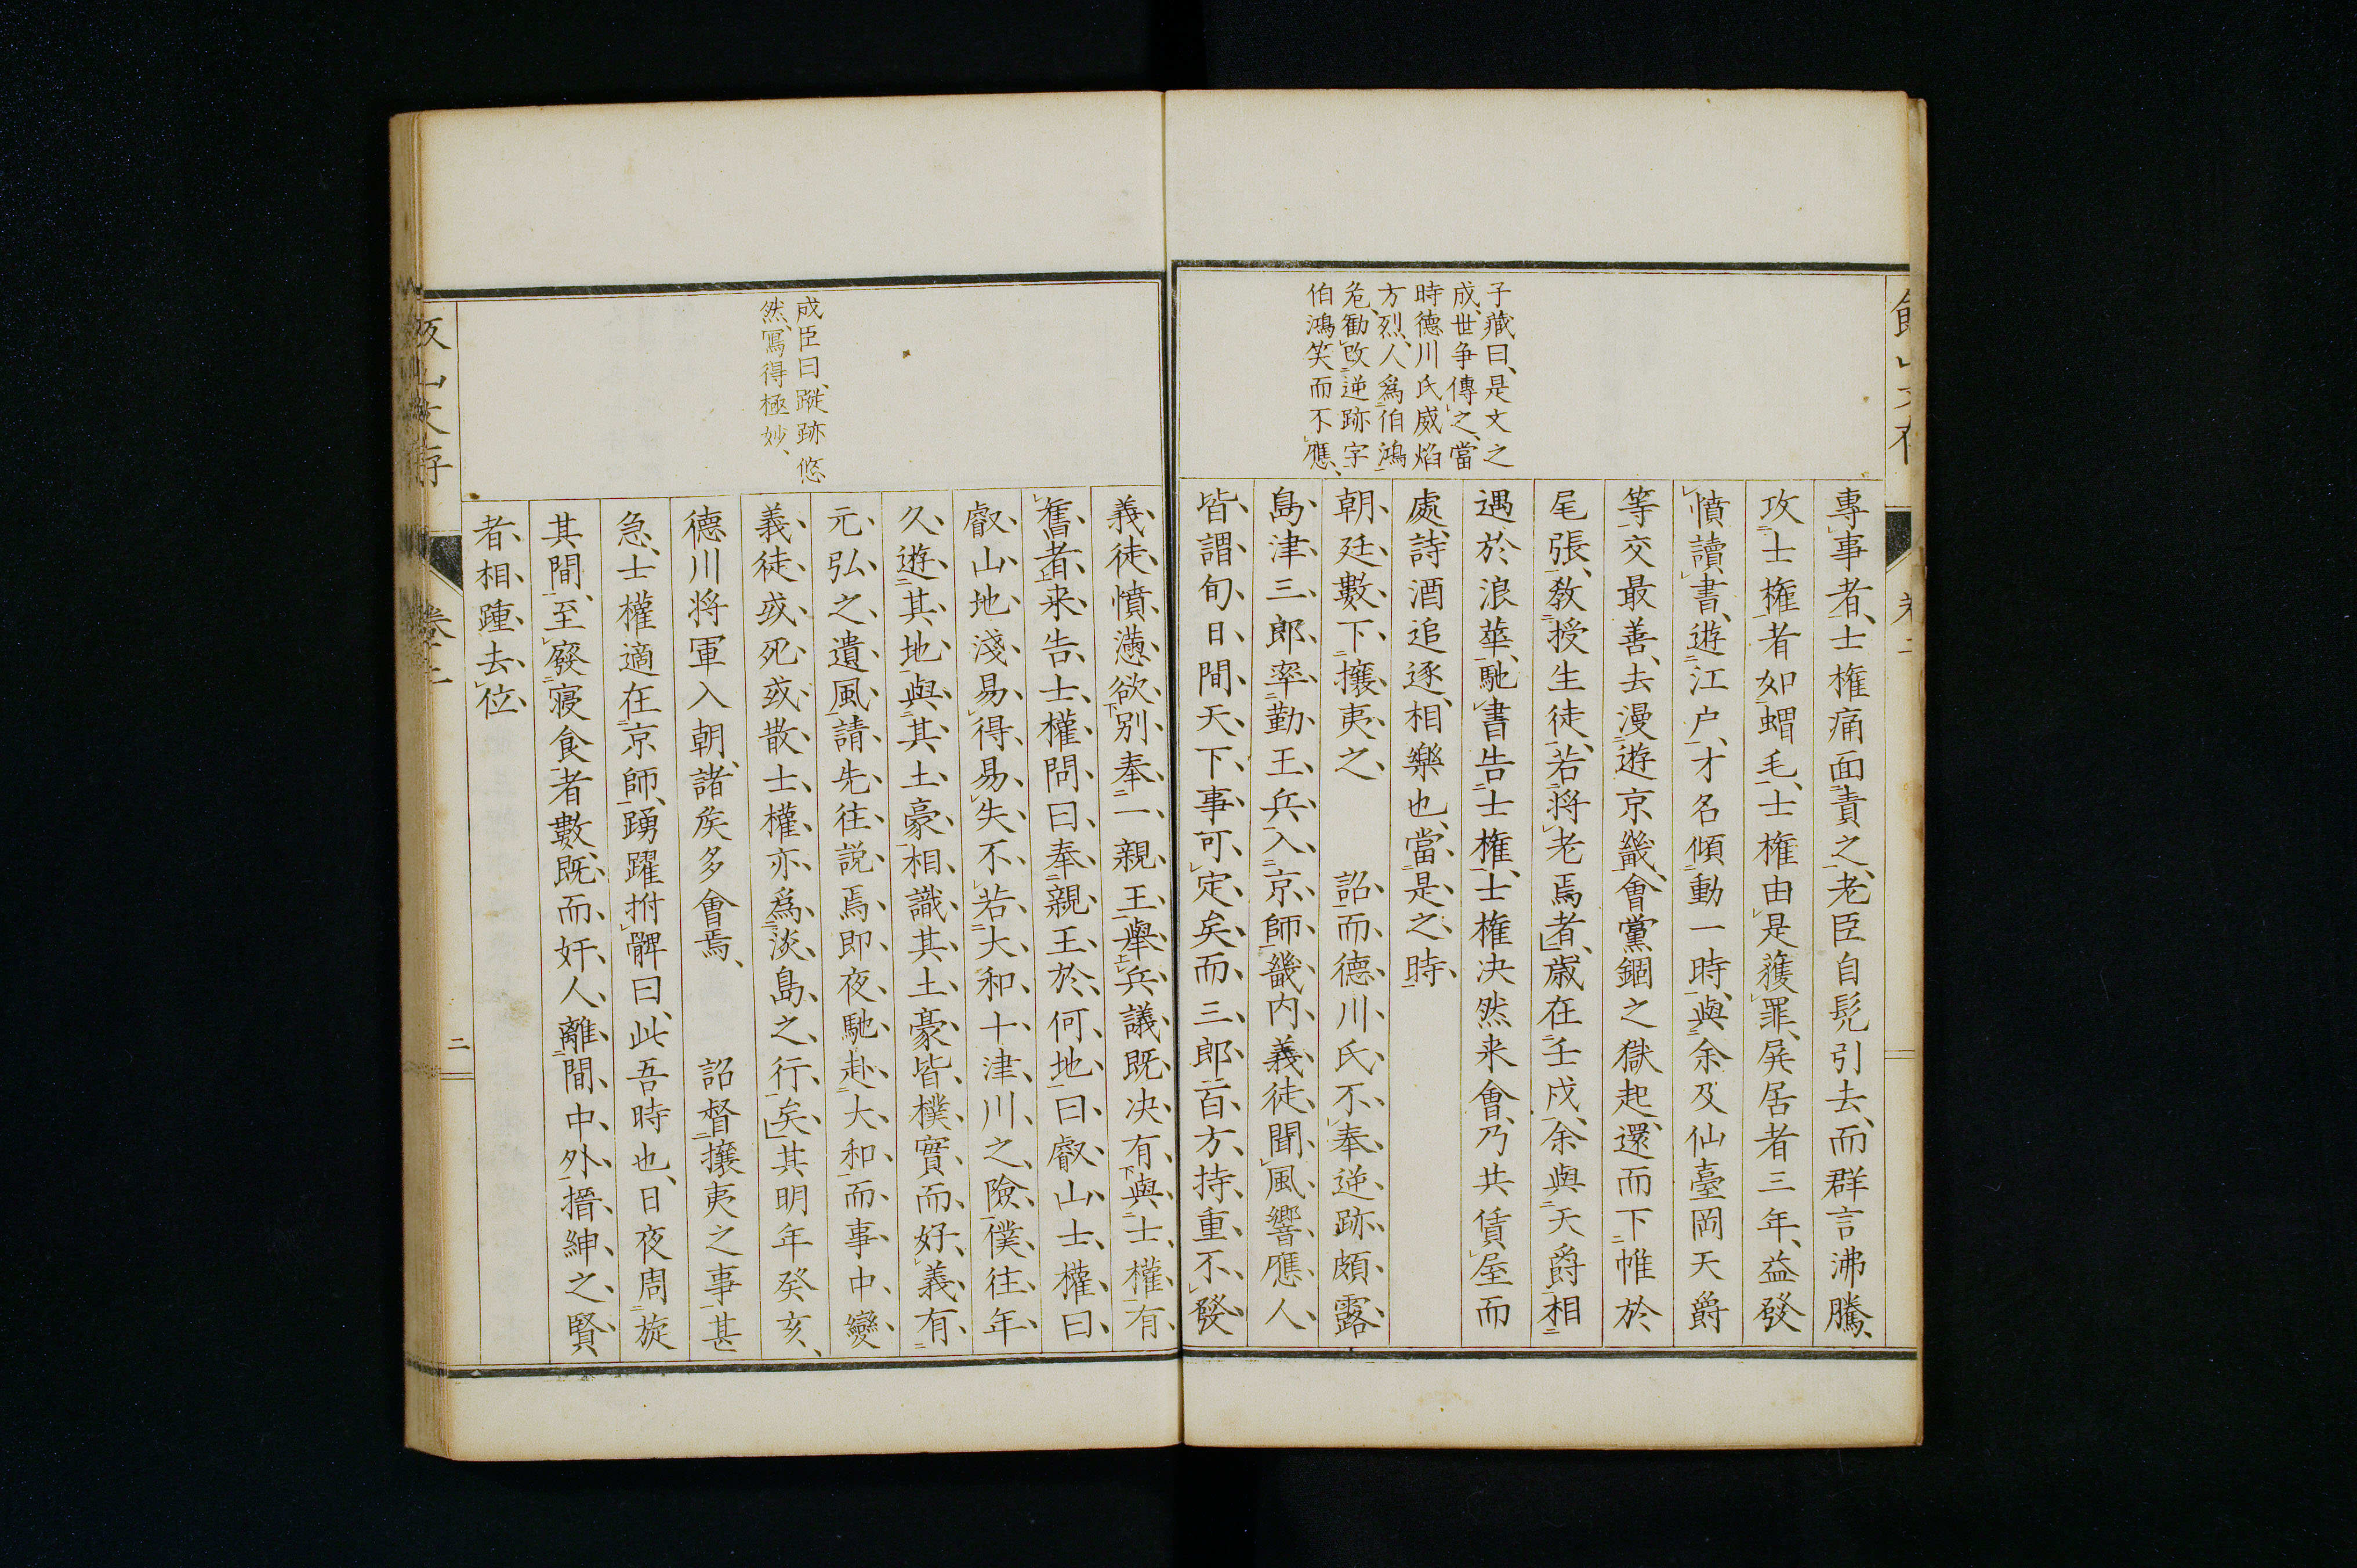 子藏曰、是文之
成、世争傳之、當
時德川氏威焰
方烈、人爲伯鴻
危、勸改逆跡字
伯鴻笑而不應、
專事者、士権痛面責之、老臣自髡引去、而群言沸騰、
攻士権者如蝟毛、士権由是獲罪、屏居者三年、益發
憤讀書、遊江户、才名傾動一時、與余及仙臺岡天爵
等交最善、去漫遊京畿、會黨錮之獄起、還而下帷於
尾張、教授生徒、若将老焉者、歳在壬戌、余與天爵相
遇於浪華、馳書告士権、士権决然来會、乃共賃屋而
處、詩酒追逐、相樂也、當是之時、
朝廷數下攘夷之　詔、而德川氏不奉逆跡頗露
島津三郎率勤王兵入京師、畿内義徒聞風響應、人
皆謂旬日間天下事可定矣、而三郎百方持重不發
義徒憤懣、欲別奉一親王舉兵、議既决、有與士權有
舊者、来告、士權問曰、奉親王於何地、曰、叡山、士權曰、
叡山地淺、易得易失、不若大和十津川之險、僕往年
久遊其地、與其土豪相識、其土豪皆樸實而好義、有
元弘之遺風、請先往説焉、即夜馳赴大和、而事中變
義徒或死或散、士權亦爲淡島之行矣、其明年癸亥、
德川将軍入朝、諸侯多會焉、　詔督攘夷之事甚
急、士權適在京師、踴躍拊髀曰、此吾時也、日夜周旋
其間、至廢寝食者數、既而奸人離間中外、搢紳之賢
者、相踵去位、
成臣曰、蹤跡悠
然、寫得極妙、
卷二
二